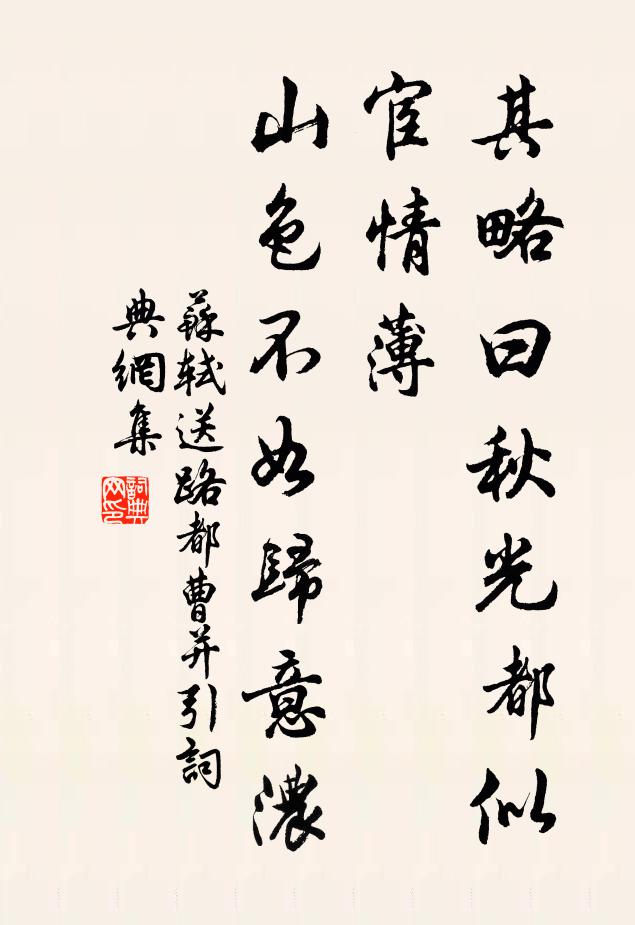 其略曰秋光都似
宦情薄
山色不如歸意濃
蘇軾送路都曹并引詞
典網集
詞典
网印